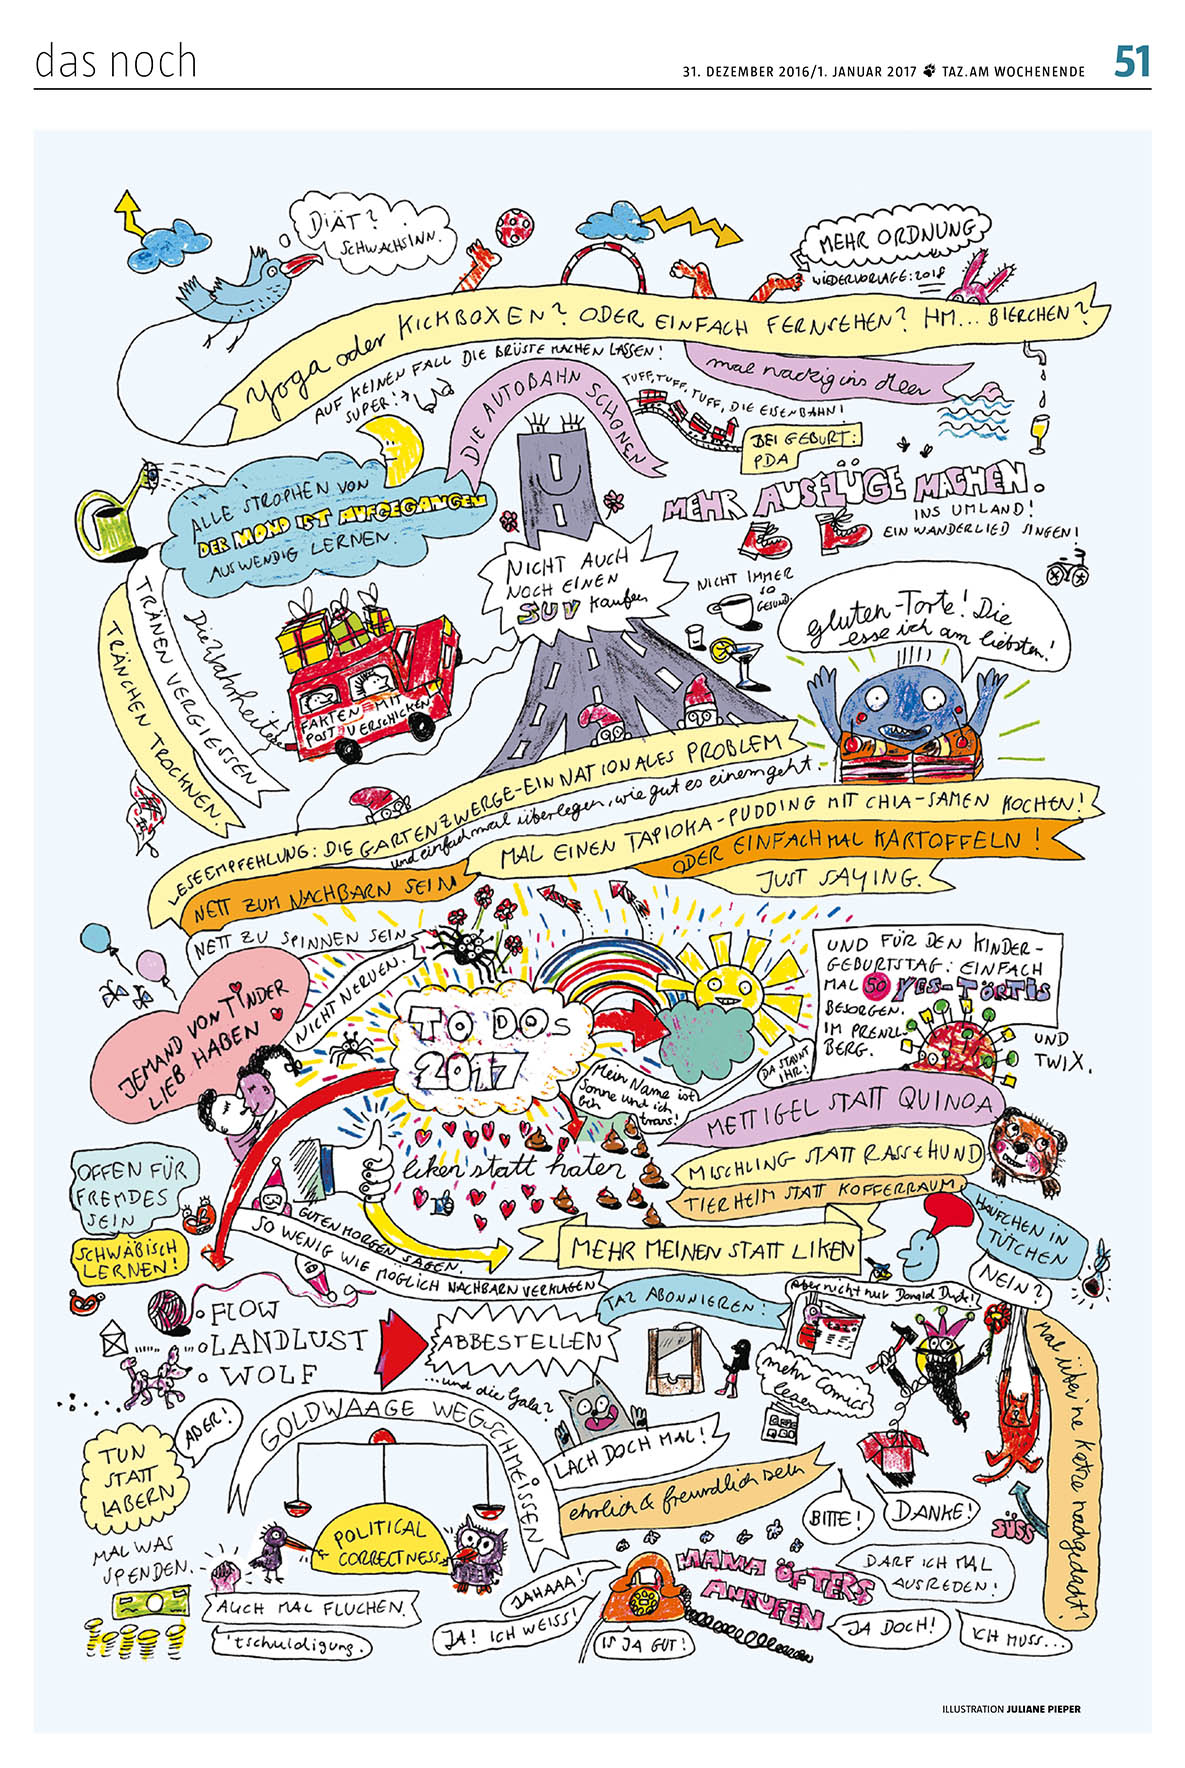 das noch
31. DEZEMBER 2016/1. JANUAR 2017 TAZ.AM WOCHENENDE
51
DIÄT?
SCHWACHSINN.
MEHR ORDNUNG
WIEDERVORLAGE: 2018
Yoga oder KICKBOXEN? ODER EINFACH FERNSEHEN? HM... BIERCHEN?
AUF KEINEN FALL DIE BRÜSTE MACHEN LASSEN!
SUPER!
mal nackig ins Meer
DIE AUTOBAHN SCHONEN
TUFF, TUFF, TUFF, DIE EISENBAHN!
BEI GEBURT:
PDA
ALLE STROPHEN VON
DER MOND IST AUFGEGANGEN
AUSWENDIG LERNEN.
MEHR AUSFLÜGE MACHEN.
INS UMLAND!
EIN WANDERLIED SINGEN!
NICHT AUCH
NOCH EINEN
SUV kaufen
NICHT IMMER
SO
GESUND:
Gluten-Torte! Die
esse ich am liebsten!
TRÄNEN VERGIESSEN
TRÄNCHEN TROCKNEN.
Die Wahrheit
FAKTEN MIT
POST VERSCHICKEN
LESEEMPFEHLUNG: DIE GARTENZWERGE-EIN NATIONALES PROBLEM
und einfach mal überlegen, wie gut es einem geht.
MAL EINEN TAPIOKA-PUDDING MIT CHIA-SAMEN KOCHEN!
ODER EINFACH MAL KARTOFFELN!
JUST SAYING.
NETT ZUM NACHBARN SEIN
NETT ZU SPINNEN SEIN
NICHT NERVEN.
JEMAND VON TINDER
LIEB HABEN
TO DOS
2017
UND FÜR DEN KINDER-
GEBURTSTAG: EINFACH
MAL 50 YES-TÖRTIS
BESORGEN.
IM PRENZL.
BERG.
UND
TWIX.
DA STAUNT
IHR!
Mein Name ist
Sonne und ich
bin
trans!
METTIGEL STATT QUINOA
MISCHLING STATT RASSEHUND
TIERHEIM STATT KOFFERRAUM
liken statt haten
OFFEN FÜR
FREMDES
SEIN
SCHWÄBISCH
LERNEN!
GUTEN MORGEN SAGEN.
SO WENIG WIE MÖGLICH NACHBARN VERKLAGEN
MEHR MEINEN STATT LIKEN
HÄUFCHEN IN
TÜTCHEN
NEIN?
FLOW
LANDLUST
WOLF
ABBESTELLEN
...und die Gala?
TAZ ABONNIEREN!
Aber nicht nur Donald Duck!
mehr Comics
lesen
Mal über 'ne Katze nachgedacht?
SÜSS
ABER!
TUN
STATT
LABERN
GOLDWAAGE WEGSCHMEISSEN
POLITICAL
CORRECTNESS
LACH DOCH MAL!
ehrlich & freundlich sein
BITTE!
DANKE!
MAL WAS
SPENDEN.
AUCH MAL FLUCHEN.
'tschuldigung.
MAMA ÖFTERS
ANRUFEN
JAHAAA!
JA! ICH WEISS!
IS JA GUT!
DARF ICH MAL
AUSREDEN!
JA DOCH!
ICH MUSS...
ILLUSTRATION JULIANE PIEPER